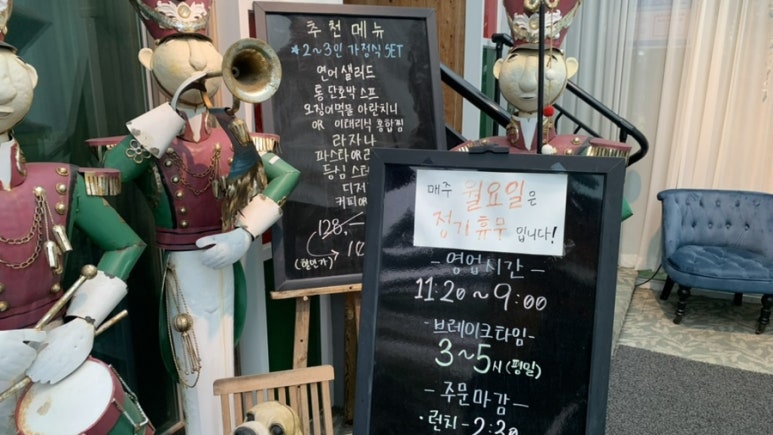 추천 메뉴
*2~3인 가정식 SET
연어 샐러드
통 단호박 스프
오징어먹물 아란치니
OR 이태리식 홍합찜
라자냐
파스타 OR
등심 스테
디저
커피
128,
(할인가) 10
매주 월요일은
정기휴무 입니다!
- 영업시간 -
11:20~9:00
- 브레이크타임 -
3~5시 (평일)
- 주문마감 -
· 런치 - 2:30